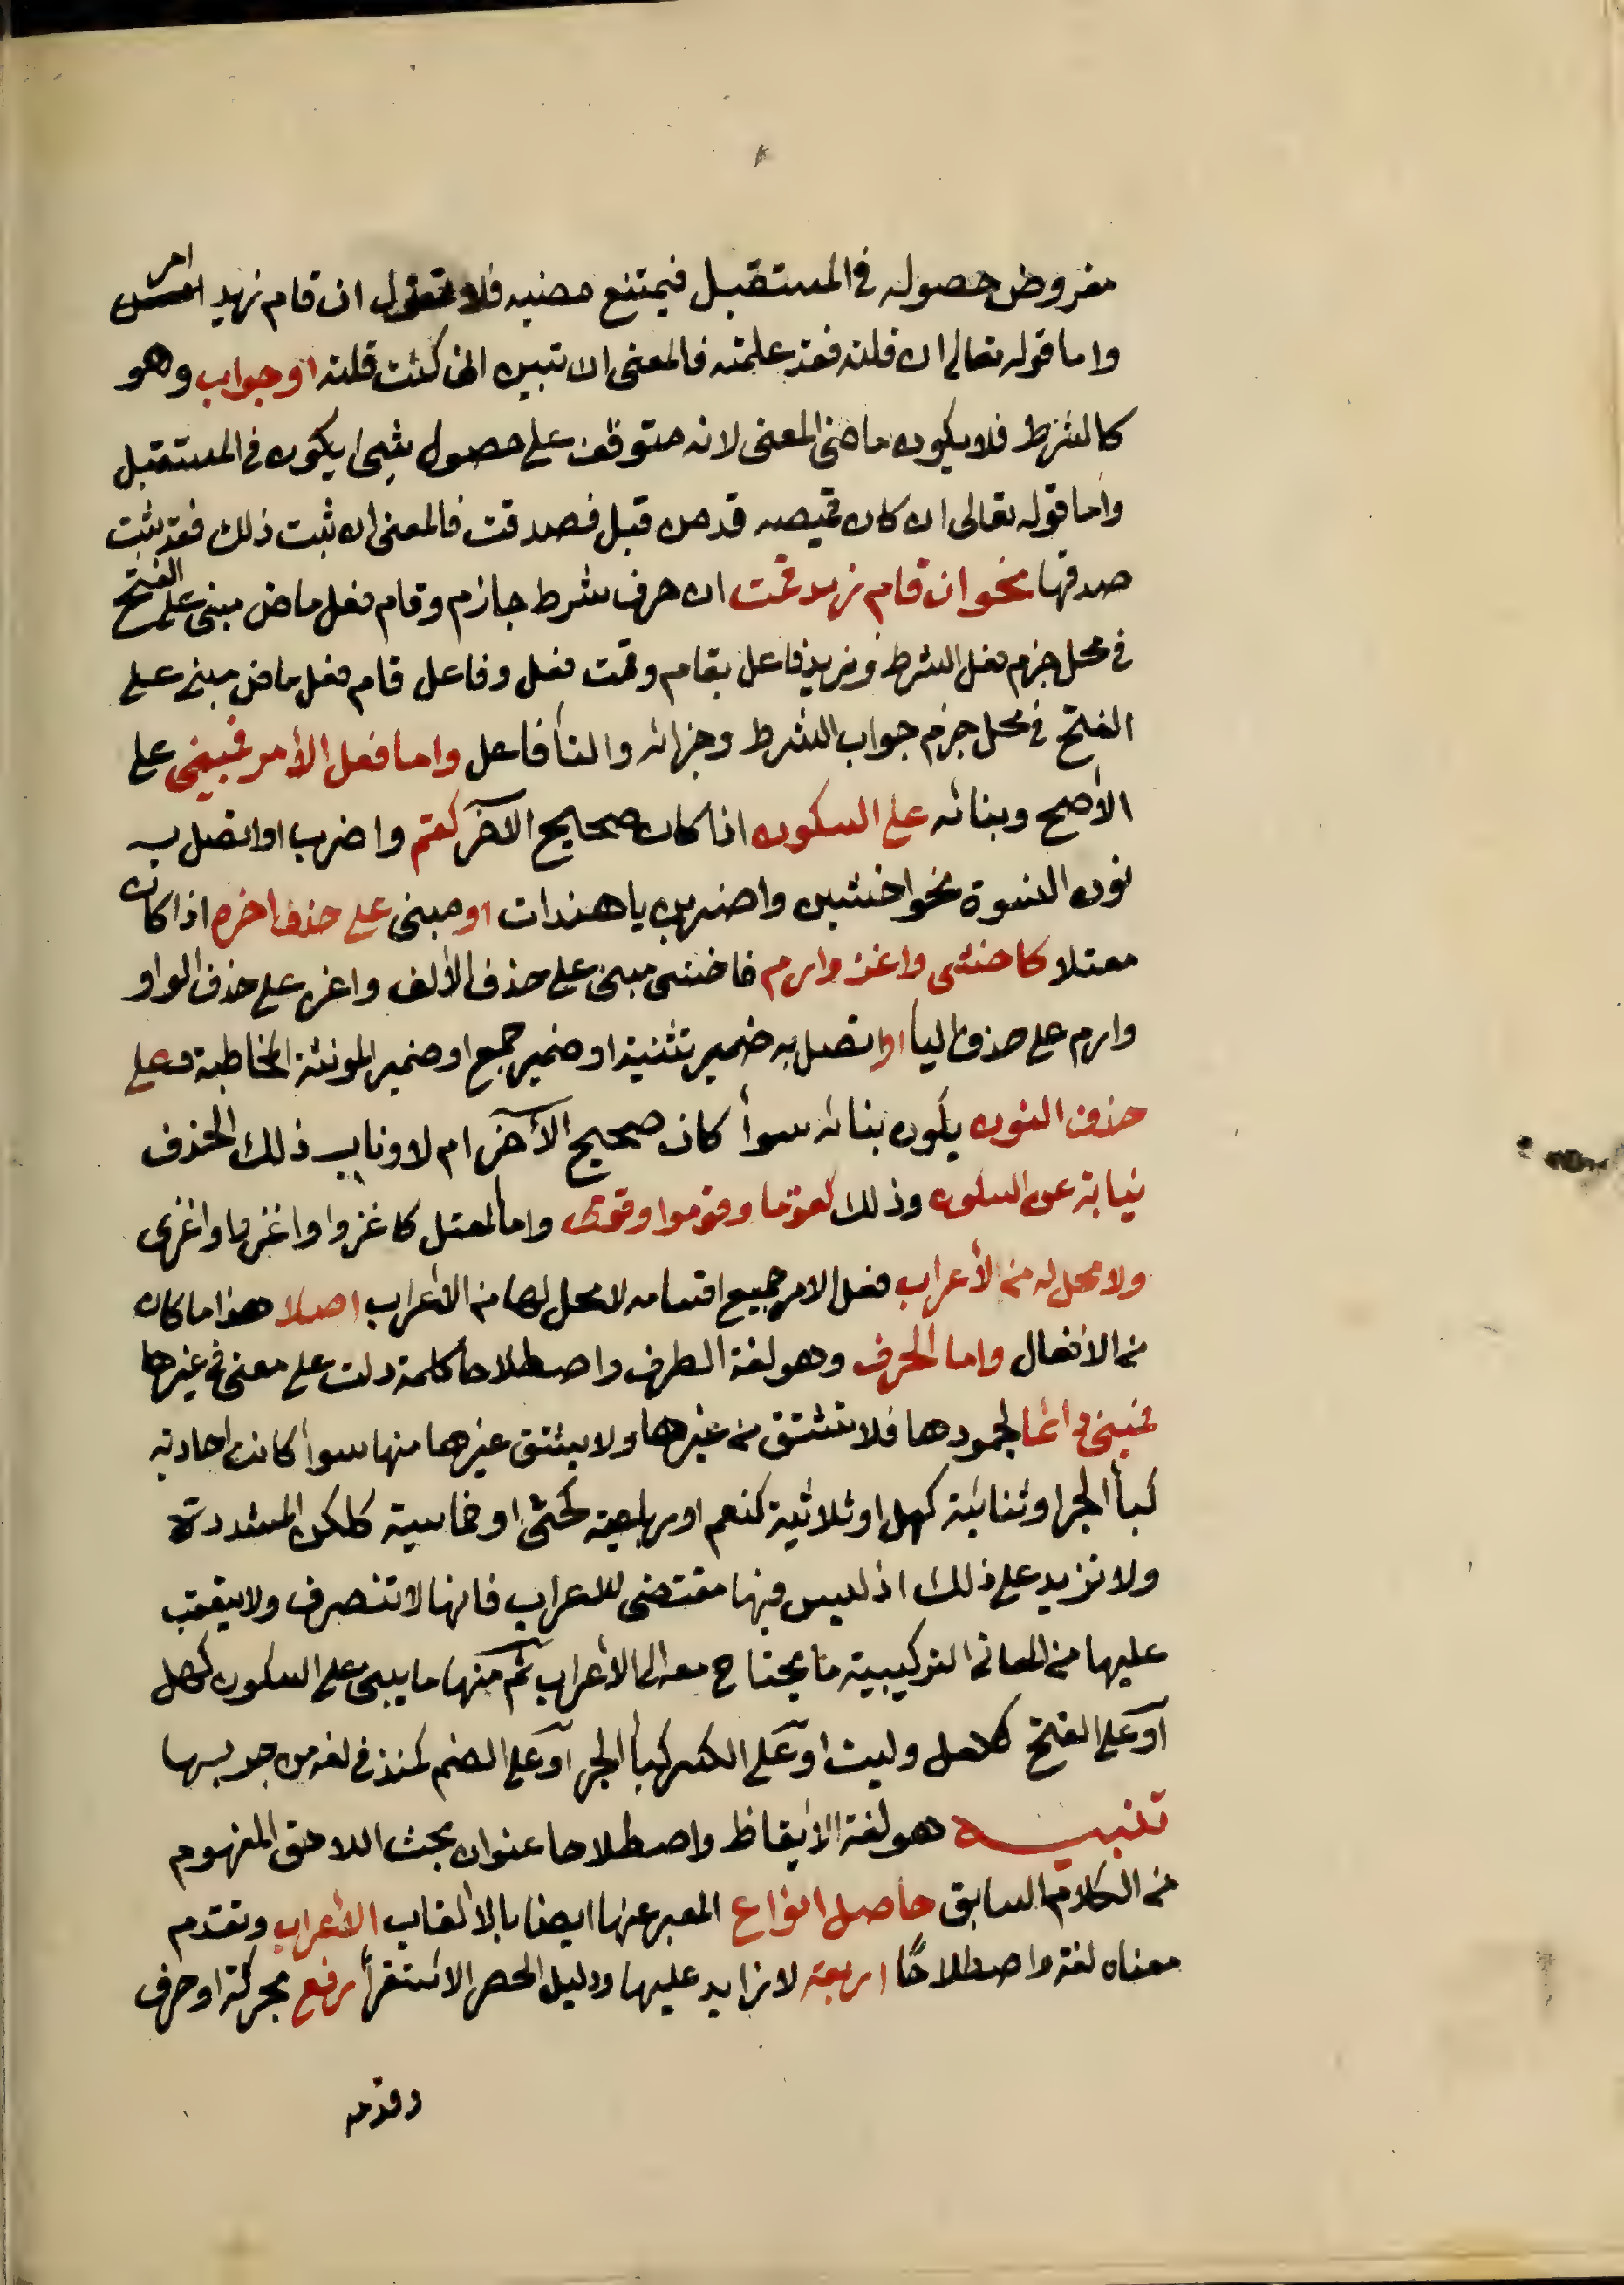 مفروض حصوله في المستقبل فيمتنع مضيه فلا تقول ان قام زيد امس
واما قوله تعالى ان قلته فقد علمته فالمعنى ان تبين اني كنت قلته او جواب وهو
كالشرط فلا يكون ماضي المعنى لانه متوقف على حصول شيئ يكون في المستقبل
واما قوله تعالى ان كان قميصه قد من قبل فصدقت فالمعنى ان ثبت ذلك فقد ثبت
صدقها نحو ان قام زيد قمت ان حرف شرط جازم وقام فعل ماض مبني على الفتح
في محل جزم فعل الشرط وزيد فاعل بقام وقمت فعل وفاعل قام فعل ماض مبني على
الفتح في محل جزم جواب الشرط وجزائه والتأ فاعل واما فعل الأمر فمبني على
الأصح وبنائه على السكون اذا كان صحيح الآخر كقم واضرب او اتصل به
نون النسوة نحو اخشين واضربن يا هندات او مبني على حذف اخره اذا كان
معتلا كاخشى واغز وارم فاخشى مبني على حذف الألف واغز على حذف الواو
وارم على حذف اليأ او اتصل به ضمير تثنية او ضمير جمع او ضمير المونثة المخاطبة فعلى
حذف النون يكون بنائه سوأ كان صحيح الآخر ام لا وناب ذلك الحذف
نيابة عن السكون وذلك كقوما وقوموا وقومى واما المعتل كاغزوا واغزوا واغزى
ولا محل له من الأعراب فعل الامر جميع اقسامه لا محل لها من الأعراب اصلا هذا ما كان
من الافعال واما الحرف وهو لغة الطرف واصطلاحا كلمة دلت على معنى في غيرها
فمبني دائما لجمودها فلا تشتق من غيرها ولا يشتق غيرها منها سوأ كانت احادية
كبأ الجر او ثنائية كهل او ثلاثية كنعم او رباعية كحتى او خماسية كلكن المشددة
ولا نزيد على ذلك اذ ليس فيها مقتضى للاعراب فانها لا تنصرف ولا يتعقب
عليها من المعاني التركيبية ما يحتاج معه الى الأعراب ثم منها ما يبنى على السكون كهل
او على الفتح كلعل وليت او على الكسر كبأ الجر او على الضم كمنذ في لغة من جر بها
تنبيه هو لغة الأيقاظ واصطلاحا عنوان بحث اللاحق المفهوم
من الكلام السابق حاصل انواع المعبر عنها ايضا بالالقاب الاعراب وتقدم
معناه لغة واصطلاحًا اربعة لا زايد عليها ودليل الحصر الاستقرأ رفع بحركة او حرف
وقدمه